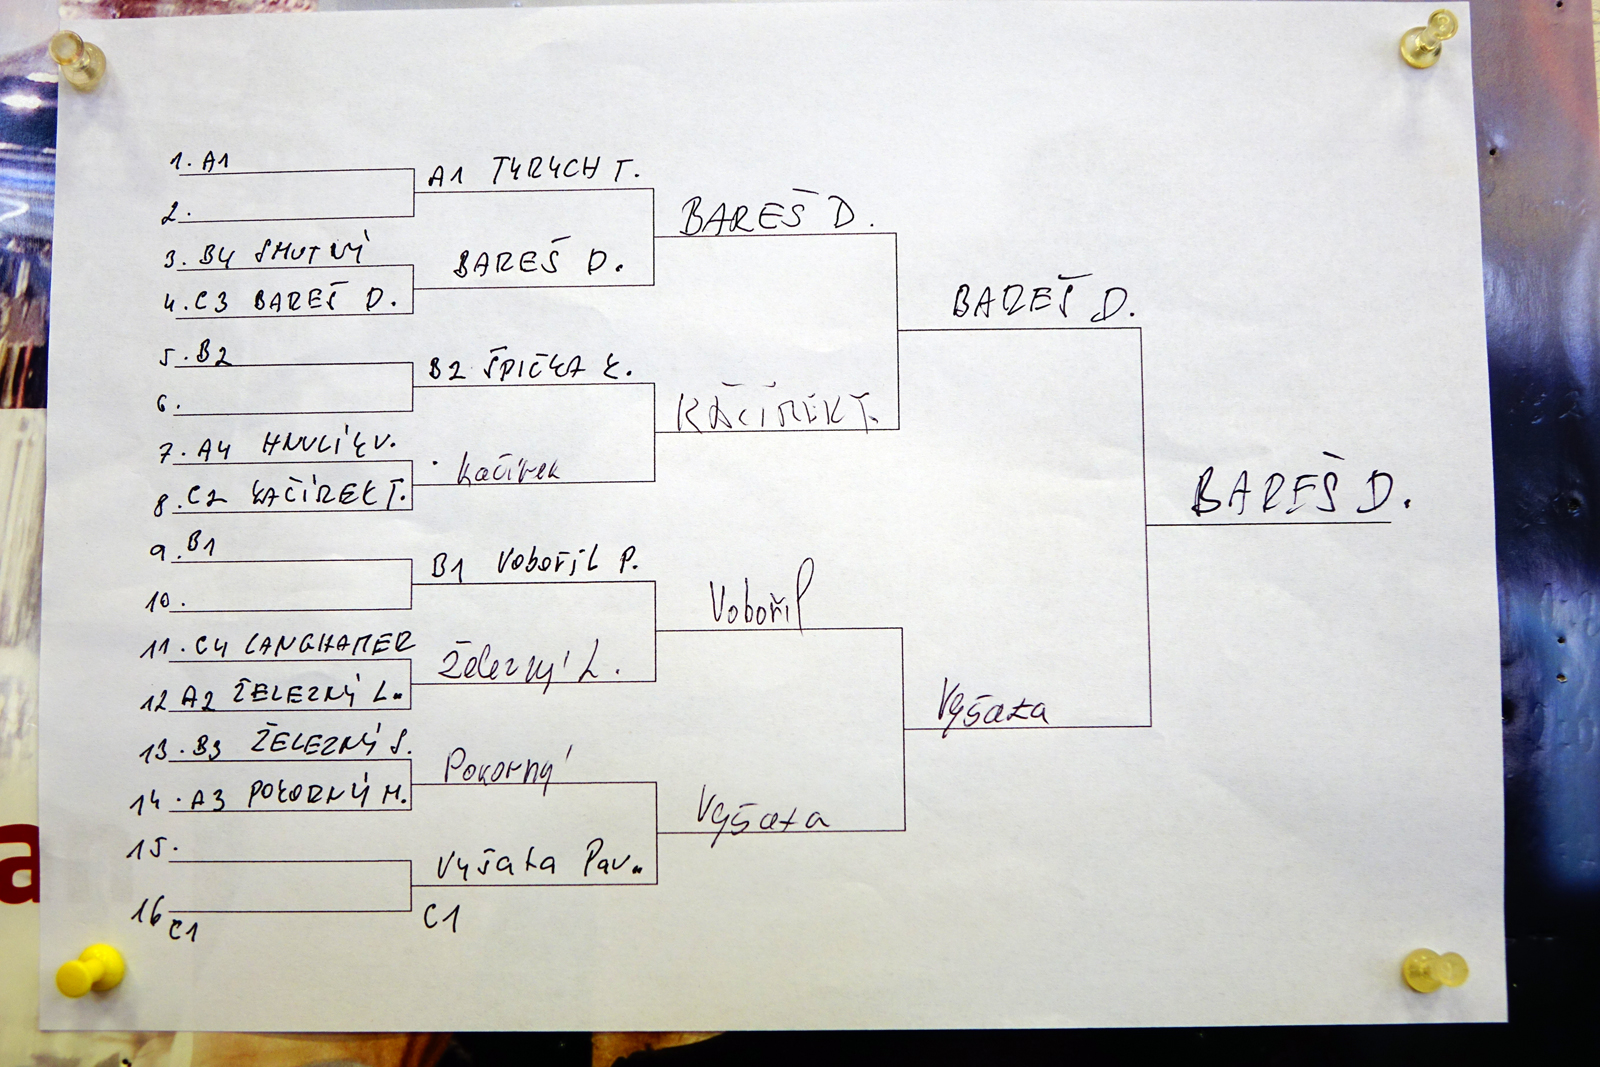 1. A1
2.
3. B4 SMUTNÝ
4. C3 BAREŠ D.
5. B2
6.
7. A4 HNULÍK V.
8. C2 KAČÍREK T.
9. B1
10.
11. C4 LANGHAMER
12 A2 ŽELEZNÝ L.
13. B3 ŽELEZNÝ S.
14. A3 POKORNÝ M.
15.
16 C1
A1 TYRYCH T.
BAREŠ D.
B2 ŠPIČKA K.
Kačírek
B1 Vobořil P.
Železný L.
Pokorný
Vyšata Pav.
C1
BAREŠ D.
KAČÍREK T.
Vobořil
Vyšata
BAREŠ D.
Vyšata
BAREŠ D.
a